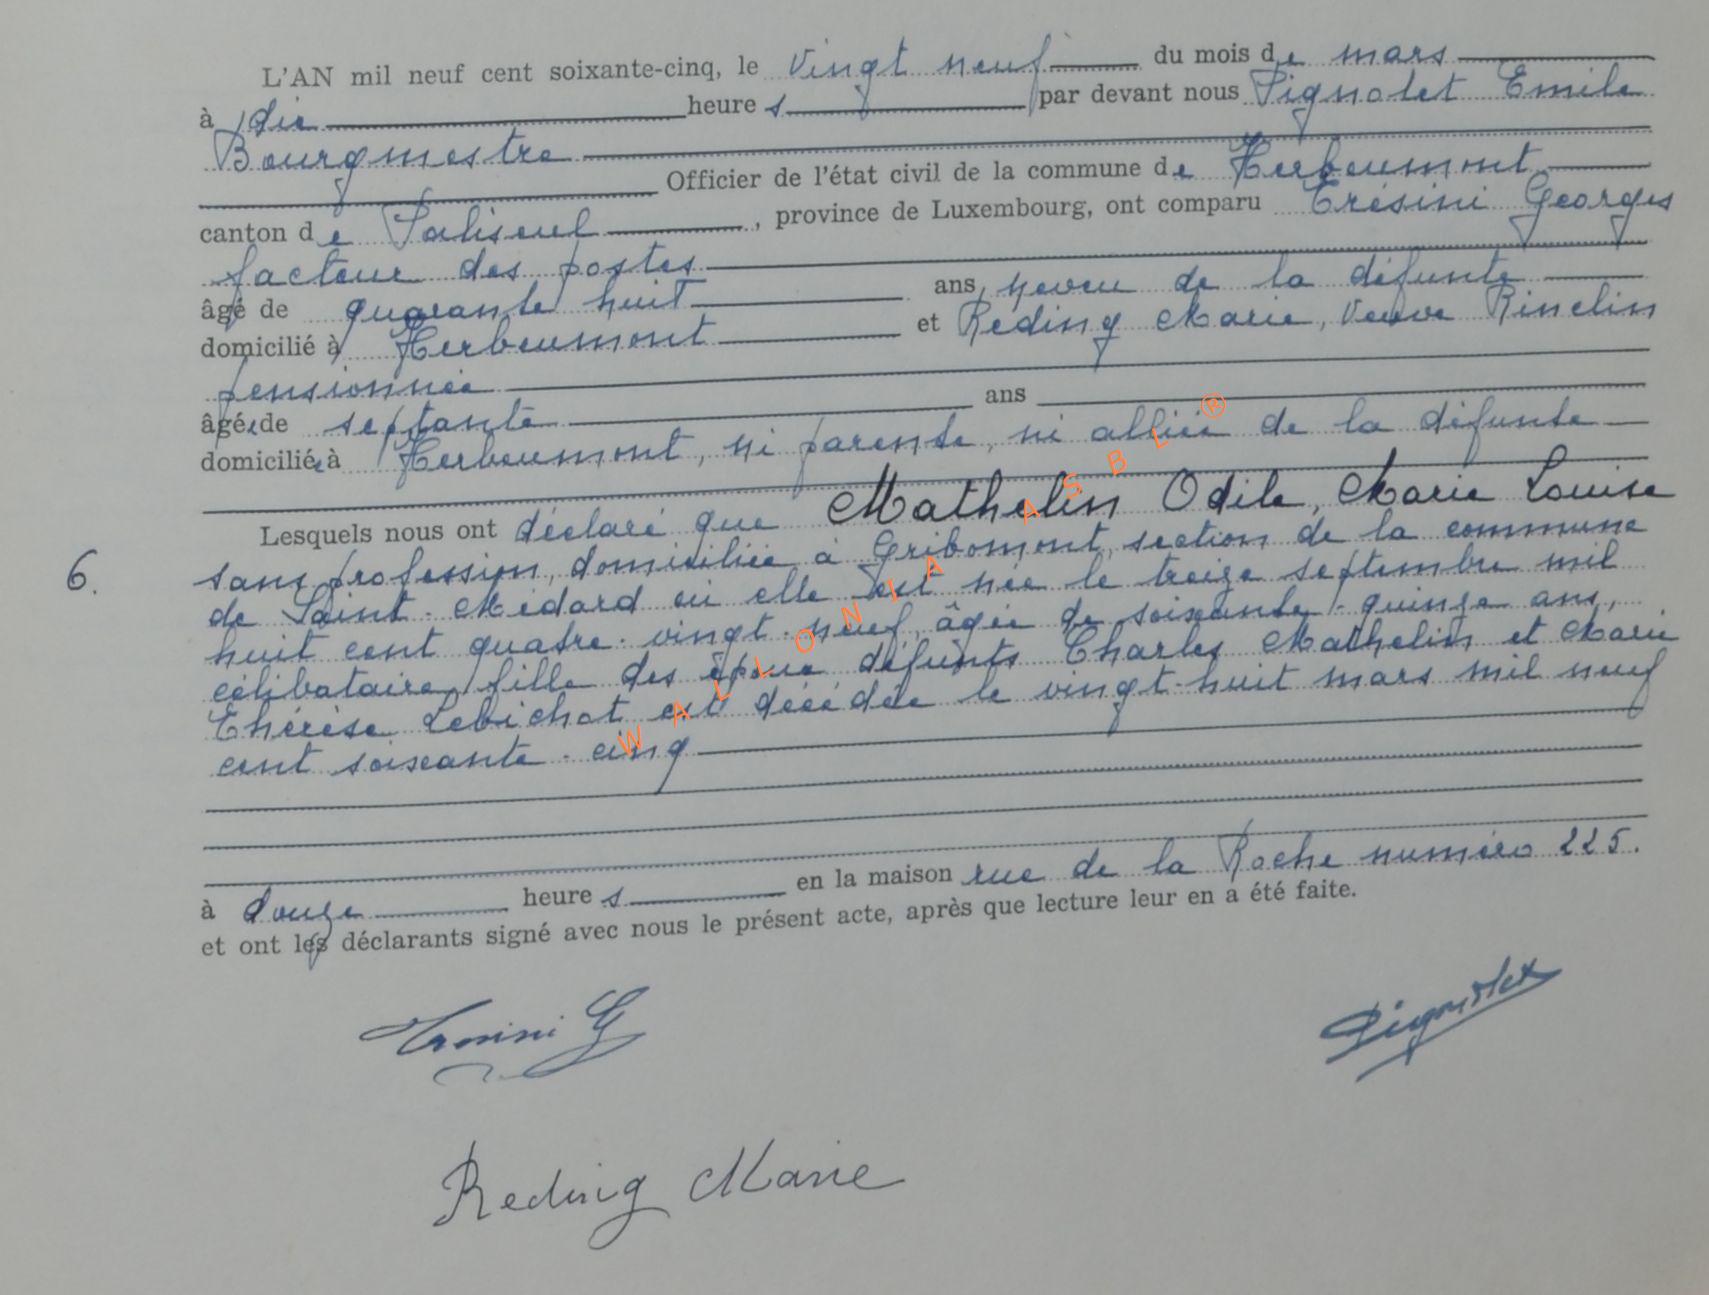 L'AN mil neuf cent soixante-cinq, le vingt neuf du mois de mars
à dix heures par devant nous Pignolet Emile
Bourgmestre
Officier de l'état civil de la commune de Herbeumont
canton de Paliseul, province de Luxembourg, ont comparu Trésini Georges
facteur des postes
âgé de quarante huit ans, neveu de la défunte
domicilié à Herbeumont et Reding Marie, veuve Rinclin
pensionnée
âgée de septante ans
domiciliée à Herbeumont, ni parente, ni alliée de la défunte
Lesquels nous ont déclaré que Mathelin Odile, Marie Louise
6. sans profession, domiciliée à Gribomont, section de la commune
de Saint-Médard où elle est née le treize septembre mil
huit cent quatre-vingt-neuf, âgée de soixante-quinze ans,
célibataire, fille des époux défunts Charles Mathelin et Marie
Thérèse Lebichot est décédée le vingt-huit mars mil neuf
cent soixante-cinq
à douze heures en la maison rue de la Roche numéro 225.
et ont les déclarants signé avec nous le présent acte, après que lecture leur en a été faite.
Tresini G
Pignolet
Reding Marie
WALLONIA ASBL ®